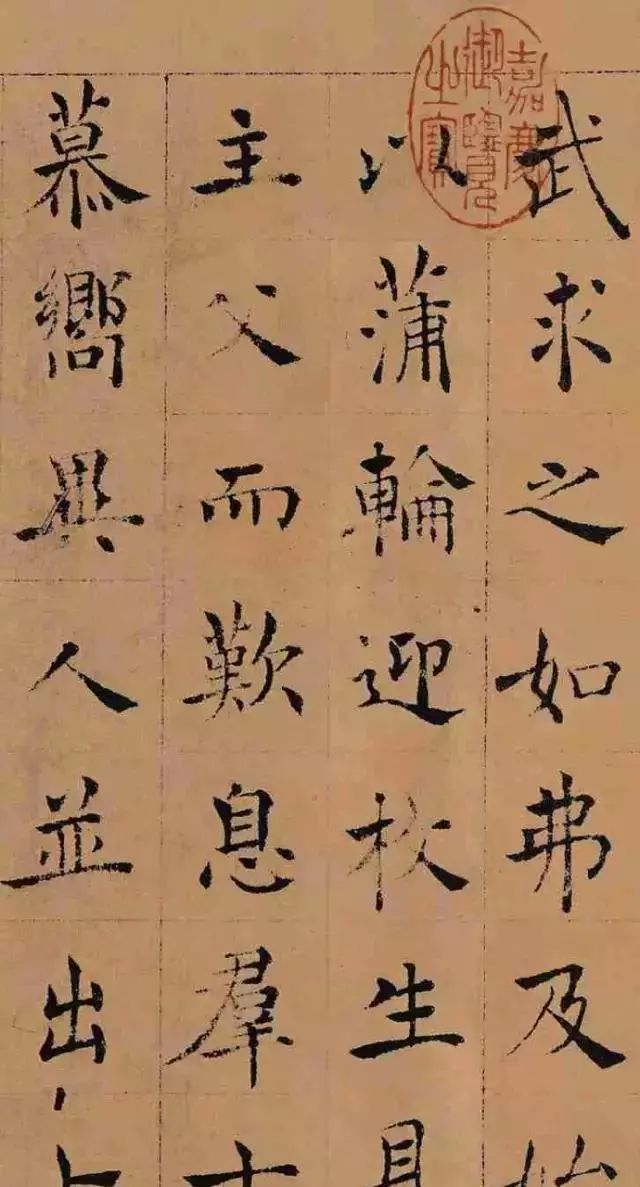 武求之如弗及
以蒲輪迎枚生
主父而歎息羣
慕嚮異人並出
嘉慶御覽之寶